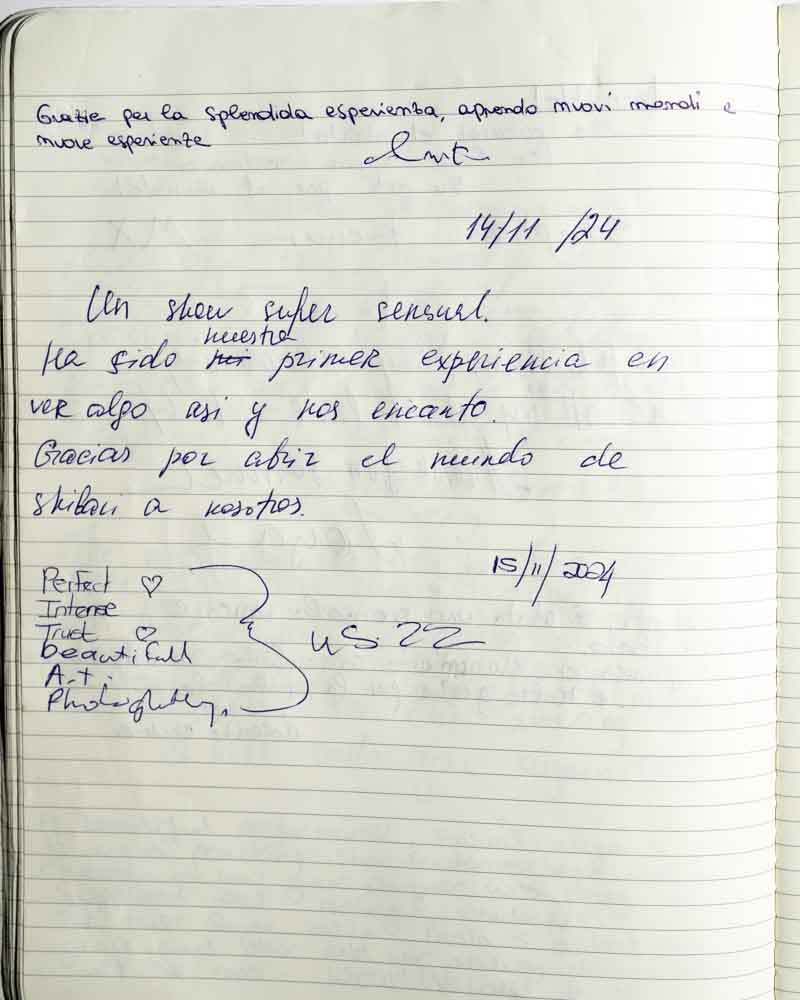 Grazie per la splendida esperienza, aprendo nuovi mondi e
nuove esperienze
14/11 /24
Un show super sensual.
nuestra
Ha sido mi primer experiencia en
ver algo asi y nos encanto.
Gracias por abrir el mundo de
shibari a nosotros.
15/11/2024
Perfect ♡
Intense
Trust ♡
beautifull
Art.
US 22